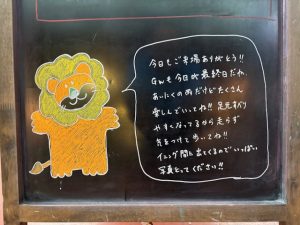 今日もご来場ありがとう!!
GWも今日が最終日だね。
あいにくの雨だけどたくさん
楽しんでいってね!! 足元すべり
やすくなってるから走らず
気をつけて歩いてね!!
イニング間に出てくるのでいっぱい
写真とってください!!